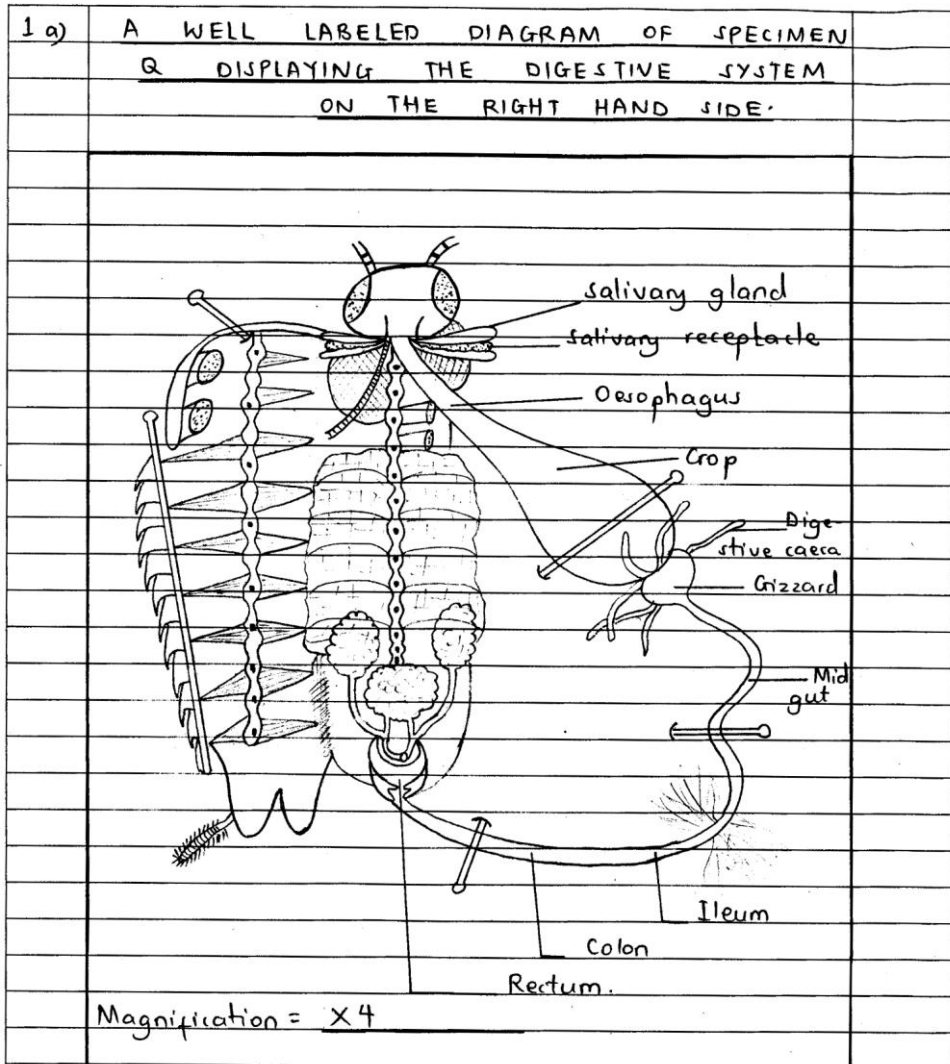 1 a) A WELL LABELED DIAGRAM OF SPECIMEN
Q DISPLAYING THE DIGESTIVE SYSTEM
ON THE RIGHT HAND SIDE.
Salivary gland
Salivary receptacle
Oesophagus
Crop
Dige-
stive caeca
Gizzard
Mid
gut
Ileum
Colon
Rectum.
Magnification = X4